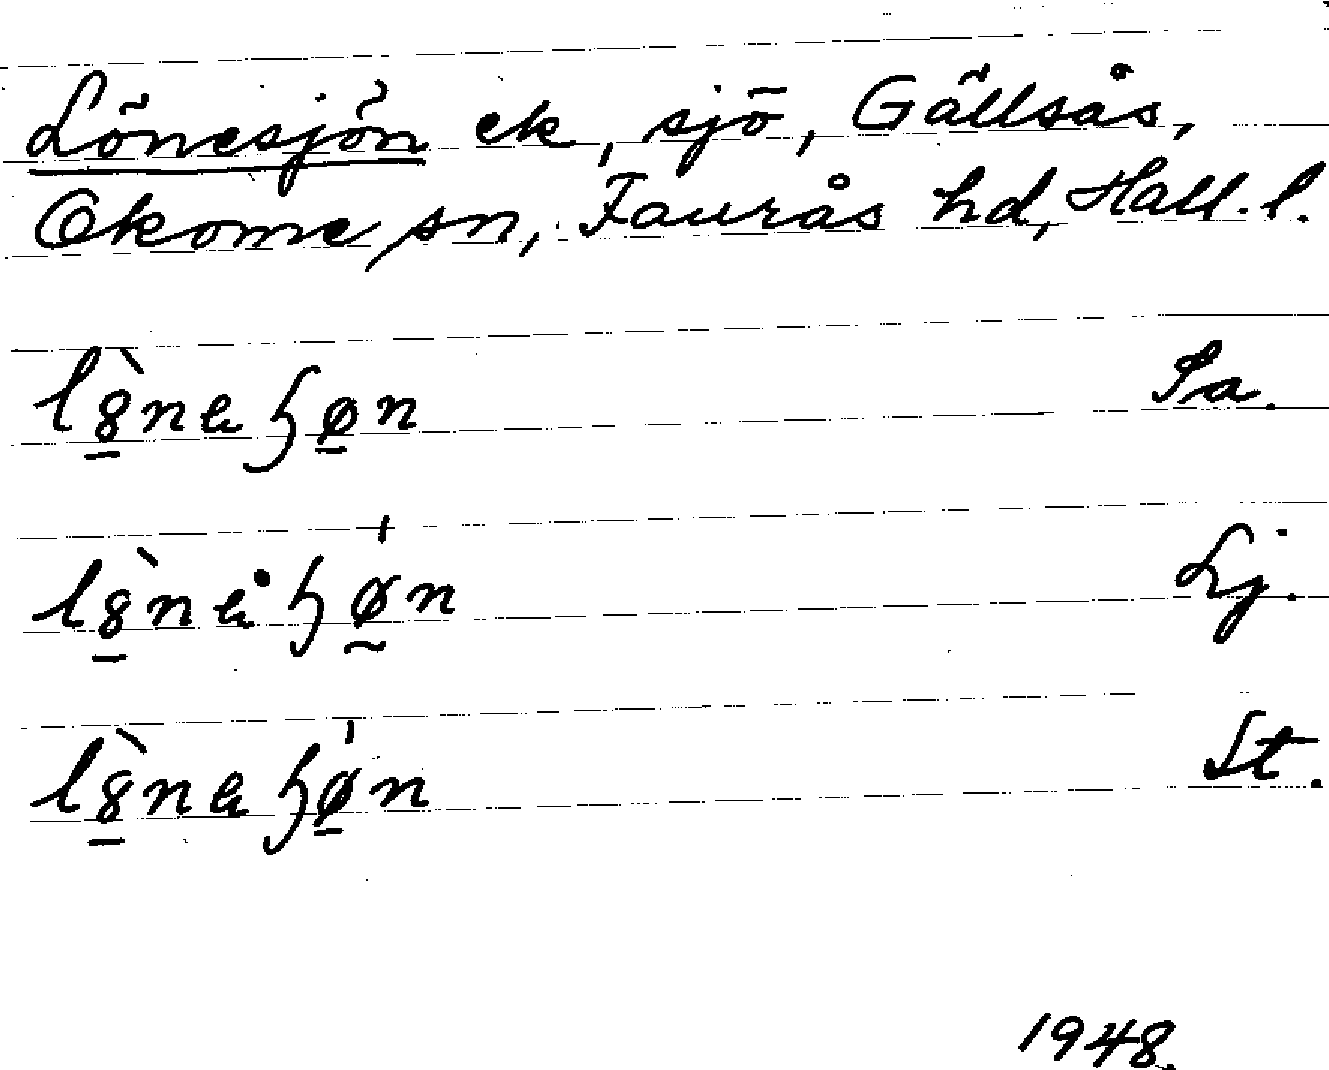 Lönesjön ek, sjö, Gällsås,
Okome sn, Faurås hd, Hall. l.
Sa.
Lj.
St.
1948.